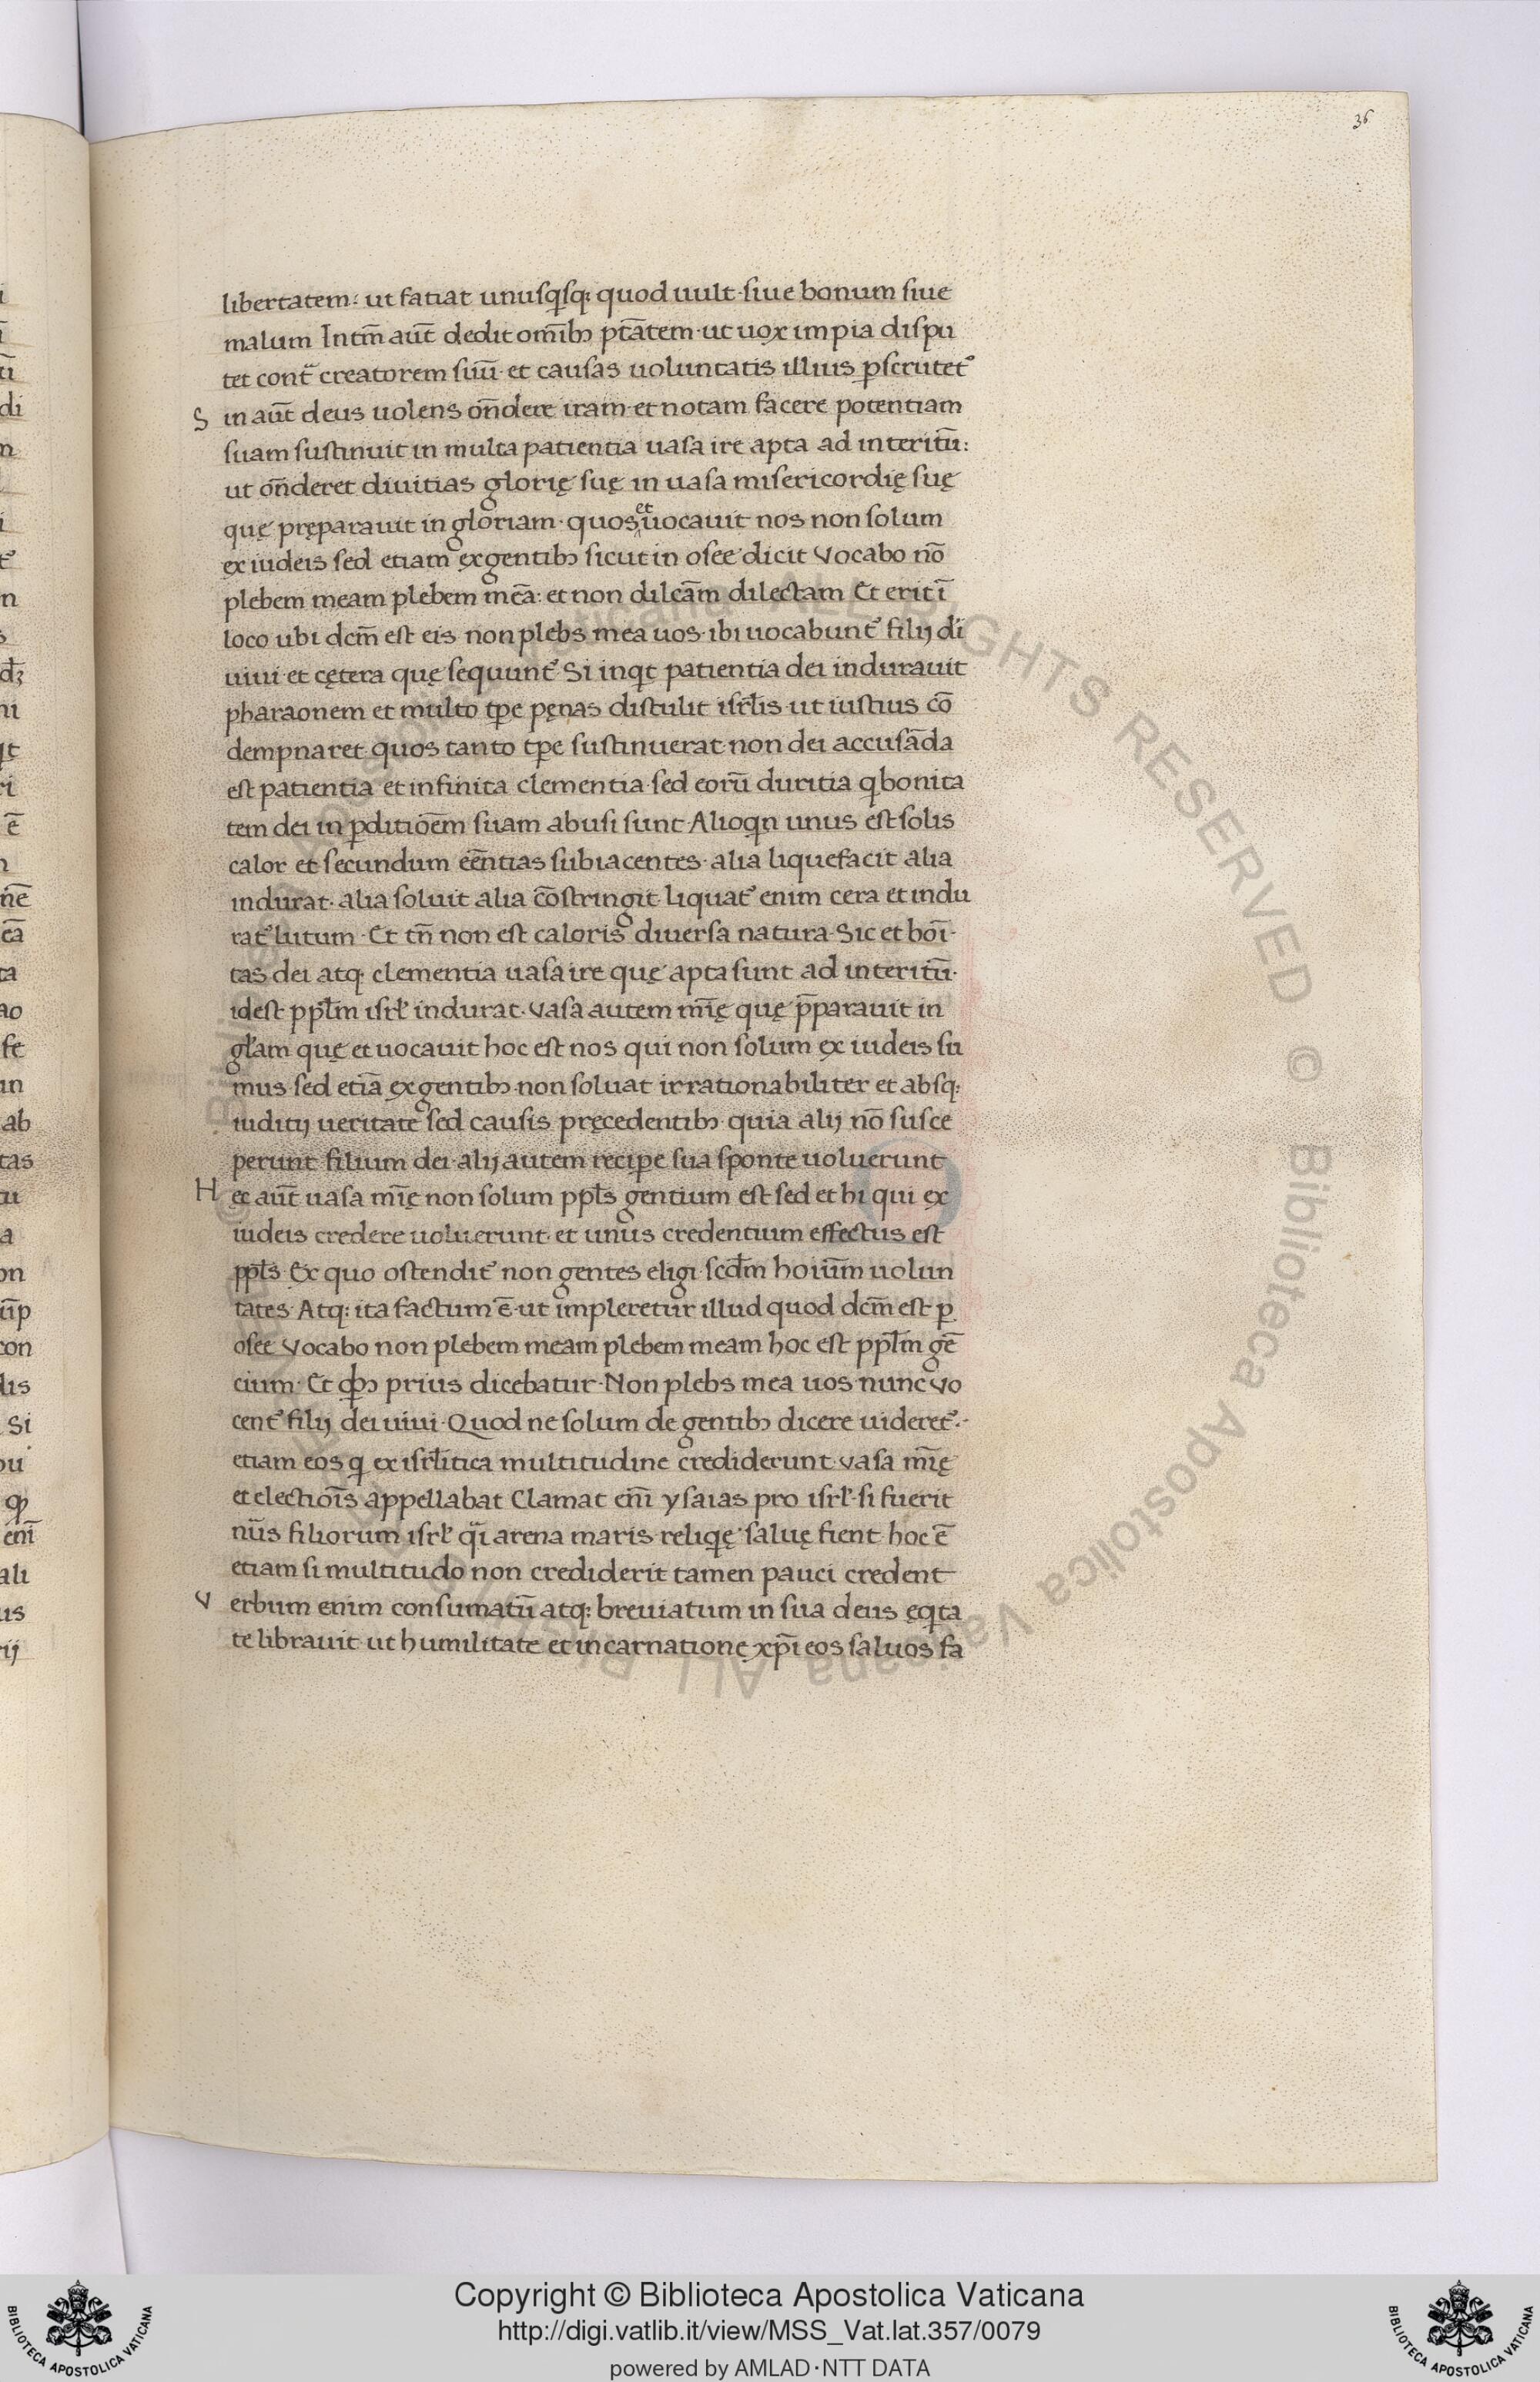 36
libertatem: ut fatiat unusq̄sq; quod uult · siue bonum siue
malum Intm̄ aut̄ dedit om̄ibꝫ ptātem · ut uox impia dispu
tet cont̄ creatorem suū · et causas uoluntatis illius ꝑscrutet᷒
S in aut̄ deus uolens on̄dere iram · et notam facere potentiam
suam sustinuit in multa patientia uasa ire apta ad interitū:
ut on̄deret diuitias glorię suę in uasa misericordię suę
quę pręparauit in gloriam · quos et uocauit nos non solum
ex iudeis sed etiam ex gentibꝫ sicut in osee dicit Vocabo nō
plebem meam plebem meā: et non dilcām dilectam Et erit ī
loco ubi dcm̄ est eis non plebs mea uos · ibi uocabunt᷒ filij dī
uiui · et cętera quę sequunt᷒ Si inqt patientia dei indurauit
pharaonem et multo tp̄e pęnas distulit isrl̄is · ut iustius cō
dempnaret quos tanto tp̄e sustinuerat · non dei accusāda
est patientia et infinita clementia · sed eorū duritia q bonita
tem dei in ꝑditiōem suam abusi sunt · Alioqn unus est solis
calor et secundum eēntias subiacentes · alia liquefacit alia
indurat · alia soluit alia cōstringit · liquat᷒ enim cera et indu
rat᷒ lutum · Et tn̄ non est caloris diuersa natura · Sic et boī·
tas dei atq; clementia uasa ire quę apta sunt ad interitū·
idest ppl̄m isrl̄ indurat · Vasa autem mīę quę p̄parauit in
gl̄am quę et uocauit hoc est nos qui non solum ex iudeis su
mus · sed etiā ex gentibꝫ · non soluat irrationabiliter et absq;
iuditij ueritate sed causis pręcedentibꝫ · quia alij nō susce
perunt filium dei · alij autem reciꝑe sua sponte uoluerunt
H ęc aut̄ uasa mīę non solum ppl̄s gentium est sed et hi qui ex
iudeis credere uoluerunt · et unus credentium effectus est
ppl̄s · Ex quo ostendit᷒ non gentes eligi · scd̄m hoiūm uolun
tates · Atq; ita factum ē · ut impleretur illud quod dcm̄ est ꝑ
osee Vocabo non plebem meam plebem meam hoc est ppl̄m gē
cium · Et qbꝫ prius dicebatur · Non plebs mea uos · nunc vo
cent᷒ filij dei uiui · Quod ne solum de gentibꝫ dicere uideret᷒ ·
etiam eos q ex isrl̄itica multitudine crediderunt · Vasa mīę
et electiōis appellabat Clamat enī ysaias pro isrl̄ · si fuerit
nūs filiorum isrl̄ qī arena maris · reliqę saluę fient · hoc ē
etiam si multitudo non crediderit tamen pauci credent
V erbum enim consumatū atq; breuiatum in sua deus ęqta
te librauit ut humilitate et incarnatione xp̄i eos saluos fa
Copyright © Biblioteca Apostolica Vaticana
http://digi.vatlib.it/view/MSS_Vat.lat.357/0079
powered by AMLAD·NTT DATA